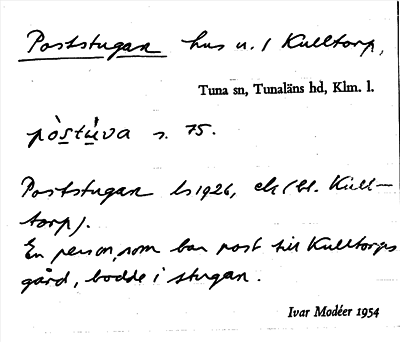 Poststugan hus u. / Kulltorp,
Tuna sn, Tunaläns hd, Klm. l.
pòstúva s. 75.
Poststugan ls 1926, ek (bl. Kull-
torp).
En person, som bar post till Kulltorps
gård, bodde i stugan.
Ivar Modéer 1954